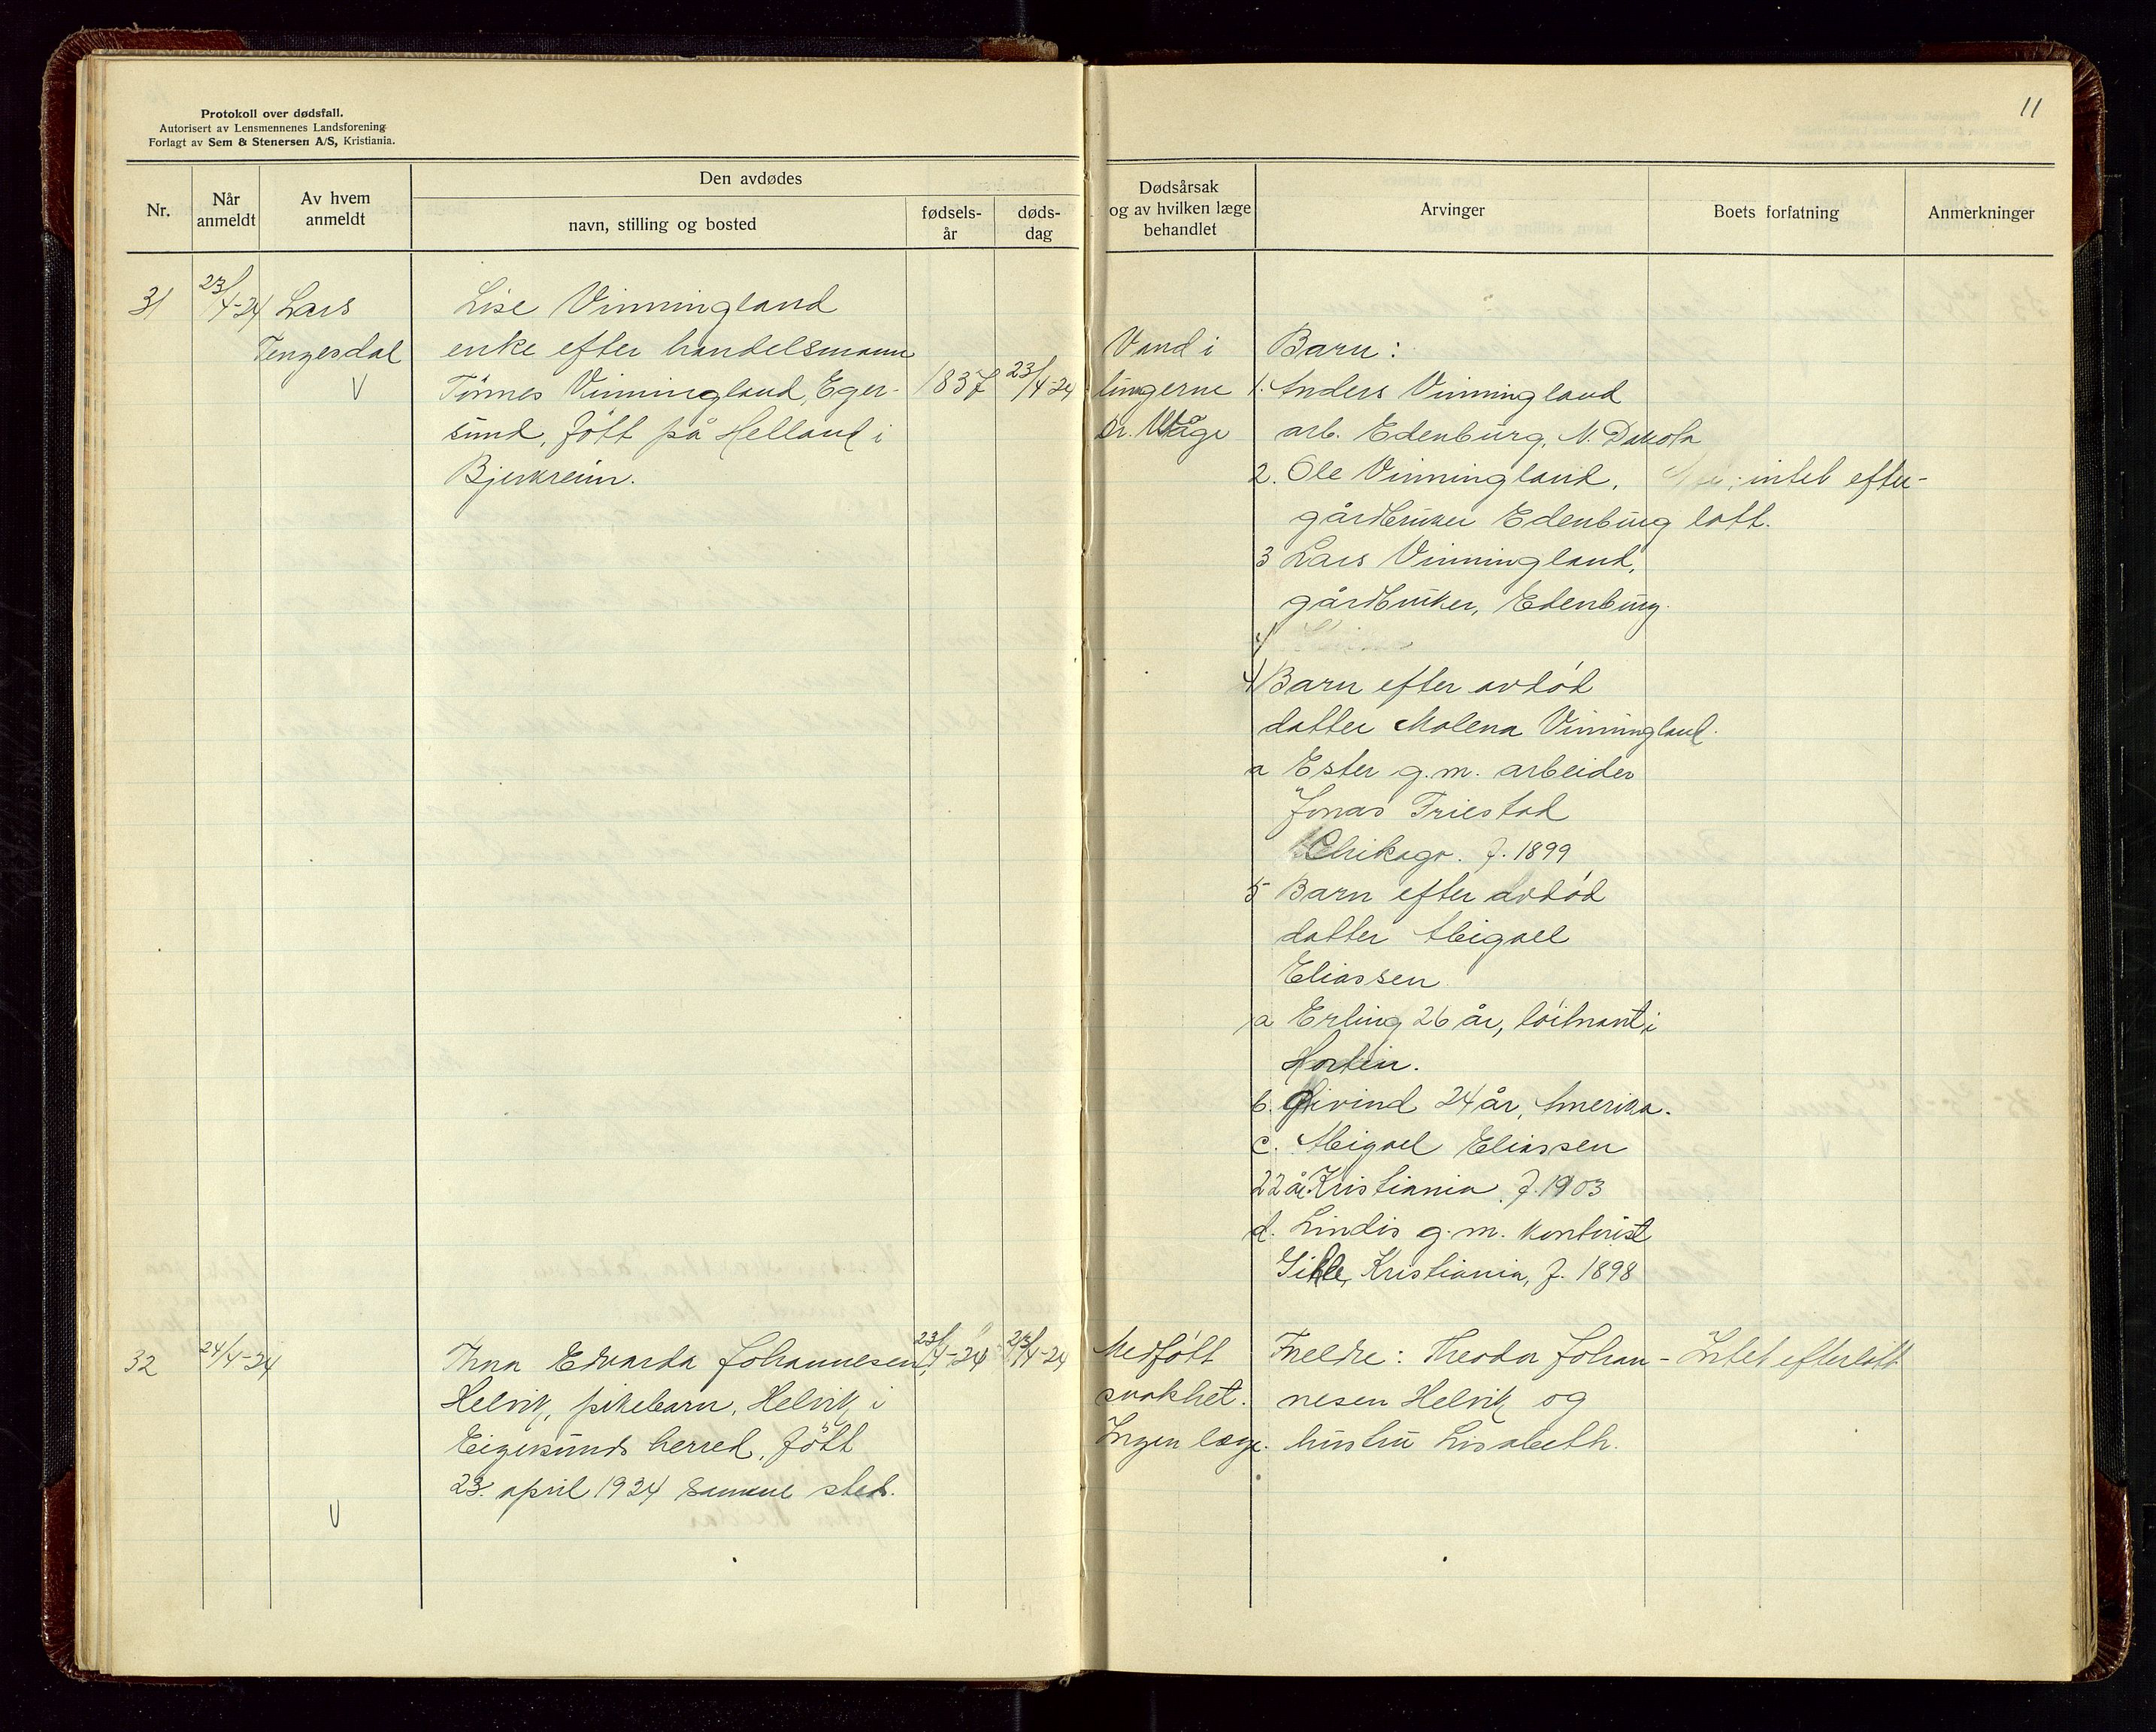 Protokoll over dødsfall.
Autorisert av Lensmennenes Landsforening
Forlagt av Sem & Stenersen A/S, Kristiania.
11
Nr.
Når anmeldt
Av hvem anmeldt
Den avdødes
navn, stilling og bosted
fødsels-år
døds-dag
Dødsårsak og av hvilken læge behandlet
Arvinger
Boets forfatning
Anmerkninger
31
23/4-24
Lars
Tengesdal
V
Lise Vinningland
enke efter handelsmann
Tönnes Vinningland, Eger-
sund, født på Helland i
Bjerkreim.
1837
23/4-24
Vand i
lungerne
Dr. Våge
Barn:
1. Anders Vinningland
arb. Edenburg, N. Dakota
2. Ole Vinningland,
gårdbruker Edenburg
3 Lars Vinningland,
gårdbruker, Edenburg.
4/
4/ Barn efter avdöd
datter Malena Vinningland.
a Ester g.m. arbeider
Jonas Friestad
Chikago. f. 1899
5 Barn efter avdöd
datter Abigael
Eliassen
a Erling 26 år, löitnant i
Horten.
b. Eivind 24 år, Amerika.
c. Abigael Eliassen
22 år Kristiania f. 1903
d. Lindis g.m. kontorist
Kristiania, f. 1898
intet efter-
latt.
32
24/4-24
V
Anna Edvarda Johannesen,
Helvik, pikebarn, Helvik i
Eigersunds herred, født
23. april 1924 samme sted.
23/4-24
23/4-24
Medfött
svakhet.
Ingen læge.
Foreldre: Theodor Johan-
nesen Helvik og
hustru Lisabeth.
Intet efterlatt